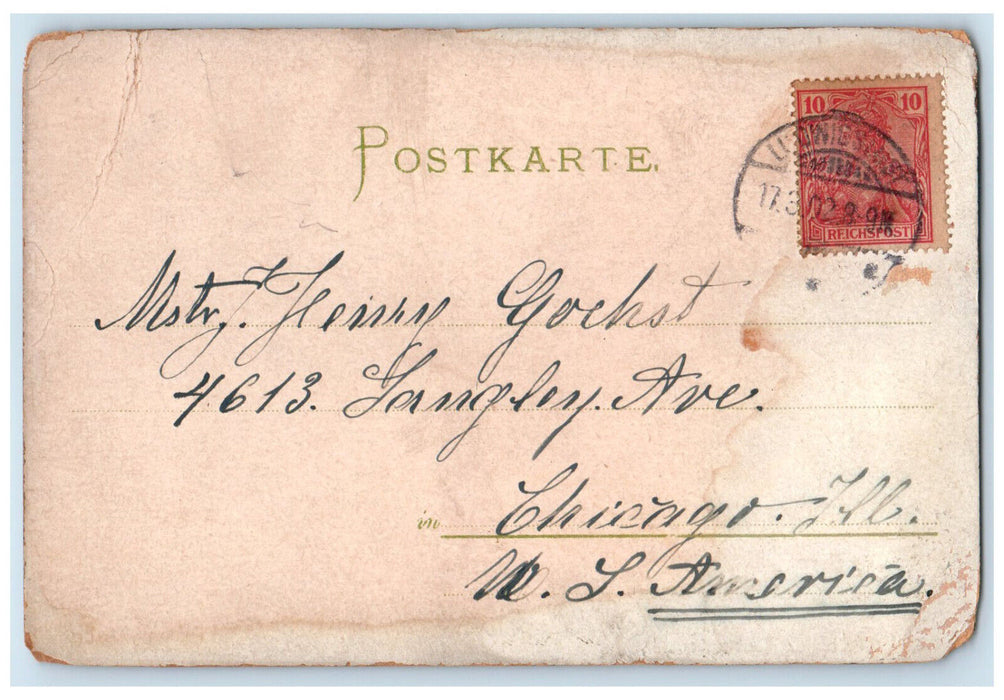 POSTKARTE.
10 10
REICHSPOST
17.3.02.8-9N
Mstr. Henry Gochst
4613. Langley. Ave.
in Chicago. Ill.
U. S. America.